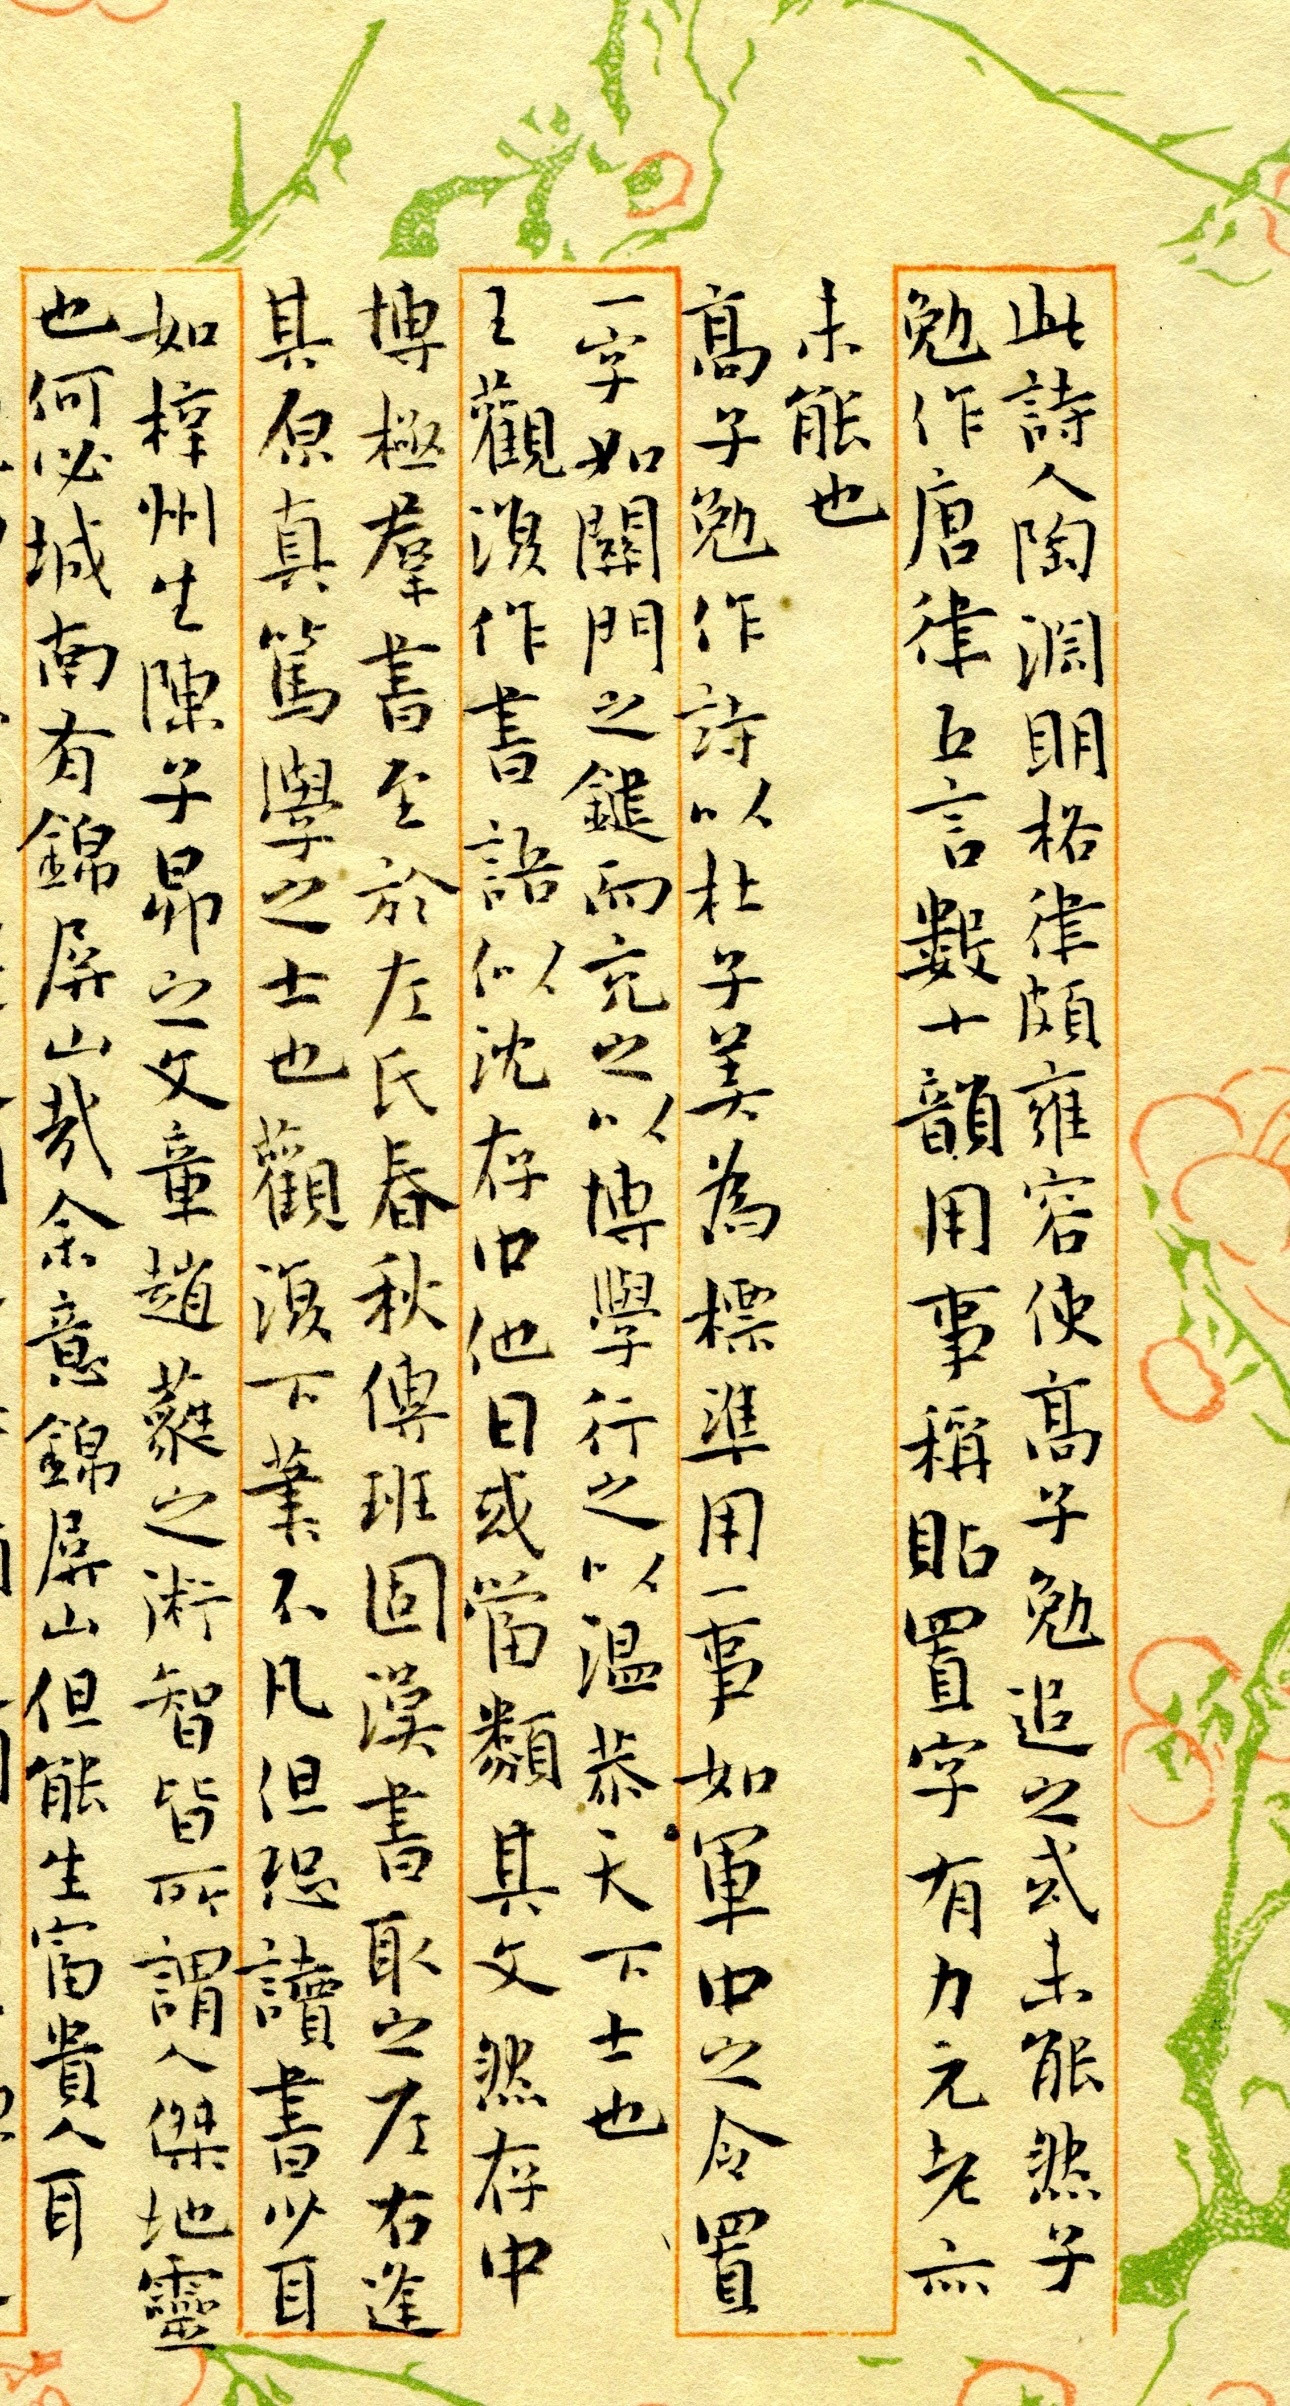 此詩人陶淵明格律頗雍容使高子勉追之或未能然子
勉作唐律五言數十韻用事穩貼置字有力元老亦
未能也
高子勉作詩以杜子美為標準用一事如軍中之令置
一字如關門之鍵而充之以博學行之以溫恭天下士也
王觀復作書語似沈存中他日或當類其文然存中
博極群書至於左氏春秋傳班固漢書取之左右逢
其原真篤學之士也觀復下筆不凡但恐讀書少耳
如梓州生陳子昂之文章趙蕤之術智皆所謂人傑地靈
也何必城南有錦屏山哉余意錦屏山但能生富貴人耳